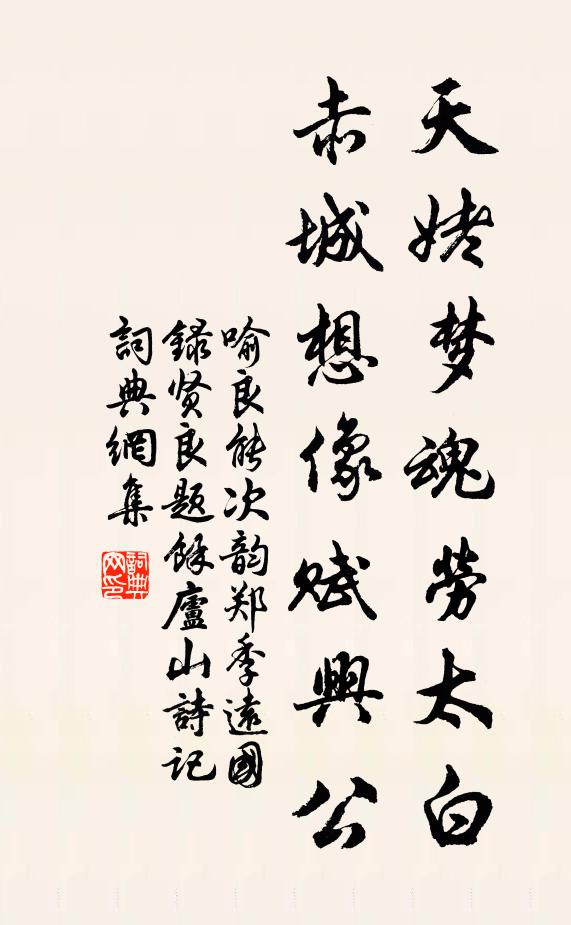 天姥梦魂劳太白
赤城想像赋興公
喻良能次韵郑季遠國
録贤良题馀廬山詩记
詞典網集
詞典网印